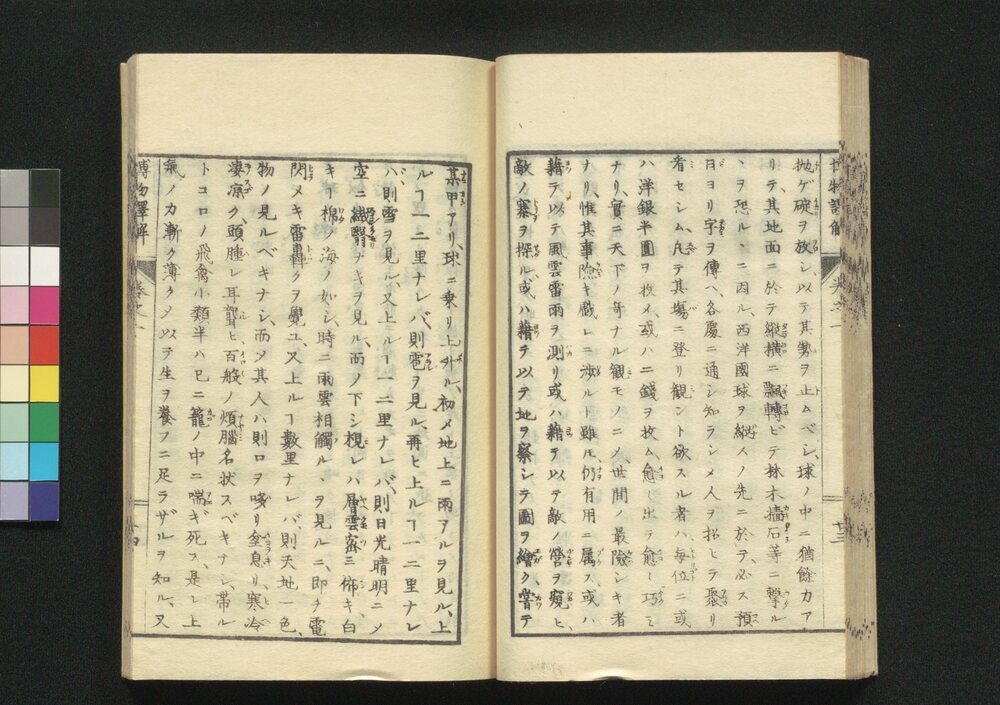 博物譯解 巻之一
抛ゲ碇ヲ放シ、以テ其勢ヲ止ムベシ、球ノ中ニ猶餘力ア
リテ、其地面ニ於テ縱横ニ飄轉ビテ林木墻石等ニ撃ル
ヽヲ恐ルヽニ因ル、西洋國球ヲ縱人ノ先ニ於テ、必ス預
日ヨリ字ヲ傳ヘ、各處ニ通シ知ラシメ人ヲ招シテ聚リ
看セシム、凡テ其塲ニ登リ觀ント欲スル者ハ、毎位ニ或
ハ洋銀半圓ヲ收メ或ハ二錢ヲ收ム、愈〻出テ愈〻巧ミ
ナリ、實ニ天下ノ奇ナル觀モノニノ、世間ノ最險シキ者
ナリ、惟其事險キ戲レニ渉ルト雖モ、仍有用ニ属ス、或ハ
藉テ以テ風雲雷雨ヲ測リ或ハ藉テ以テ敵ノ營ヲ窺ヒ、
敵ノ寨ヲ探ル、或ハ藉テ以テ地ヲ察シテ圖ヲ繪ク、嘗テ
十三
某甲アリ、球ニ乗リ上升ル、初メ地上ニ雨アルヲ見ル、上
ルヿ一二里ナレバ、則雹ヲ見ル、再ヒ上ルヿ一二里ナレ
バ、則雪ヲ見ル、又上ルヿ一二里ナレバ、則日光晴明ニメ
空ニ纎翳ナキヲ見ル、而ノ下シ視レハ層雲密ニ佈キ、白
キヿ棉ノ海ノ如シ、時ニ兩雲相觸ルヽヲ見ルニ、即チ電
閃メキ雷轟クヲ覺ユ、又上ルヿ數里ナレバ、則天地一色、
物ノ見ルベキナシ、而ソ其人ハ則口ヲ咳リ奎息リ、寒冷
凄凉ク、頭腫レ耳聾ヒ、百般ノ煩腦名状スベキナシ、帯ル
トコロノ飛禽小類半ハ已ニ籠ノ中ニ喘ギ死ス、是レ上
氣ノ力漸ク薄クメ以テ生ヲ養フニ足ラザルヲ知ル、又
博物譯解 巻之一
十四